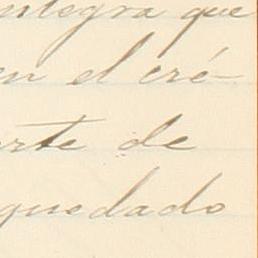 integra que
en el cré-
arte de
quedado